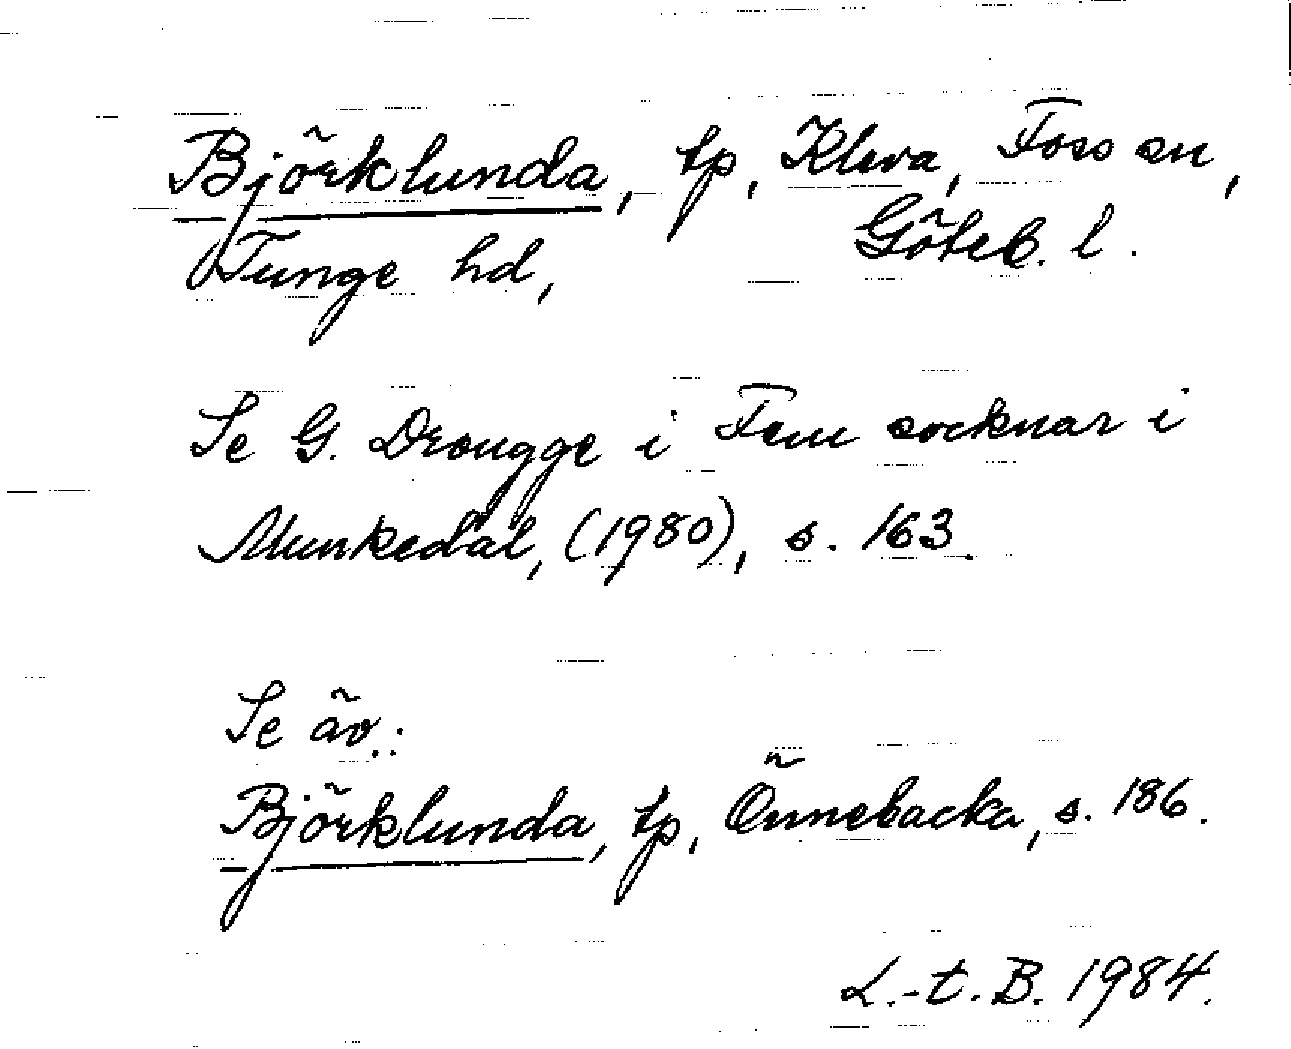 Björklunda, tp, Kleva, Foss sn,
Tunge hd, Göteb. l.
Se G. Drougge i Fem socknar i
Munkedal, (1980), s. 163.
Se äv.:
Björklunda, tp, Önnebacka, s. 186.
L.-t. B. 1984.